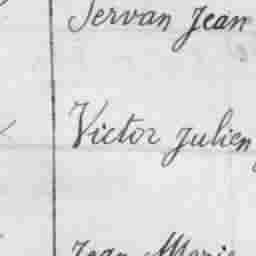 Servan Jean
Victor Julien
Jean Marie